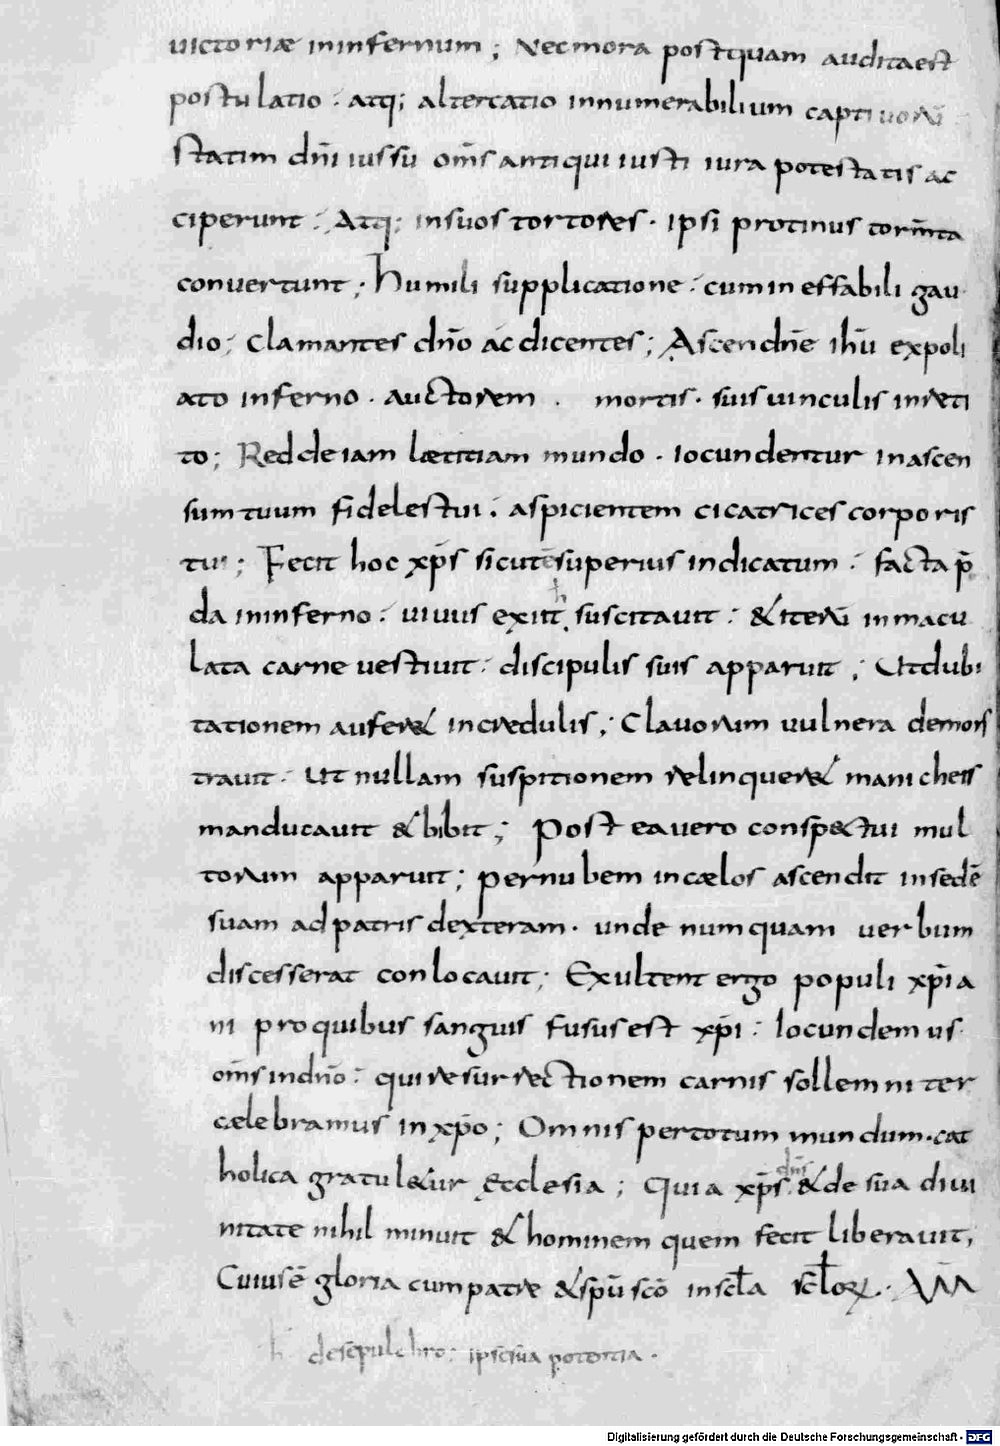 uictoriæ ininfernum ; Necmora postquam auditaest
postulatio : atq; altercatio innumerabilium captiuorū
statim dn̄i iussu om̄s antiqui iusti iura potestatis ac
ciperunt : Atq; insuos tortores · ipsi protinus torm̄ta
conuertunt ; Humili supplicatione : cumineffabili gau
dio ; clamantes dn̄o ac dicentes ; Ascendn̄e ih̄u expoli
ato inferno · auctorem · mortis · suisuinculis inreti
to ; Reddeiam lætitiam mundo · iocundentur inascen
sumtuum fidelestui · aspicientem cicatrices corporis
tui ; Fecit hoc xp̄s sicutēsuperius indicatum : facta p̄
da ininferno : uiuus exiit h suscitauit : &iterū inmacu
lata carne uestiuit : discipulis suis apparuit ; Utdubi
tationem aufer& incredulis ; Clauorum uulnera demons
trauit · ut nullam suspitionem relinquer& manicheis
manducauit &bibit ; Post eauero consp&tui mul
torum apparuit ; pernubem incælos ascendit insedē
suam adpatris dexteram · unde numquam uerbum
discesserat conlocauit ; Exultent ergo populi xp̄ia
ni proquibus sanguis fususest xp̄i : Iocundemus
om̄s indn̄o : quiresurrectionem carnis sollemniter
celebramus inxp̄o ; Omnis pertotum mundum · cat
holica gratul&ur Ecclesia ; Quia xp̄s dn̄s &de sua diui
nitate nihil minuit & hominem quem fecit liberauit,
Cuiusē gloria cumpatre &sp̄u sc̄o inscl̄a scl̄oꝝ · AM̄
h desepulchro : ipsesua potentia ·
Digitalisierung gefördert durch die Deutsche Forschungsgemeinschaft - DFG